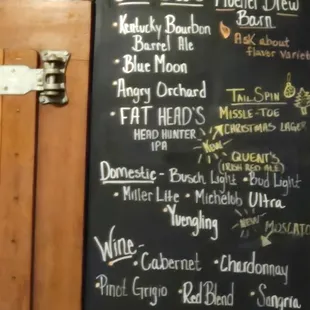 Kentucky Bourbon
Barrel Ale
• Blue Moon
Angry Orchard
• FAT HEAD'S
HEAD HUNTER
IPA
Brew
Barn
Ask about
flavor
TAIL SPIN
MISSLE-TOE
CHRISTMAS LAGER
NEW
QUENT'S
(IRISH RED ALE)
Domestic - Busch Light • Bud Light
• Miller Lite • Michelob Ultra
• Yuengling
NEW
MOSCATO
Wine -
• Cabernet • Chardonnay
• Pinot Grigio • Red Blend • Sangria